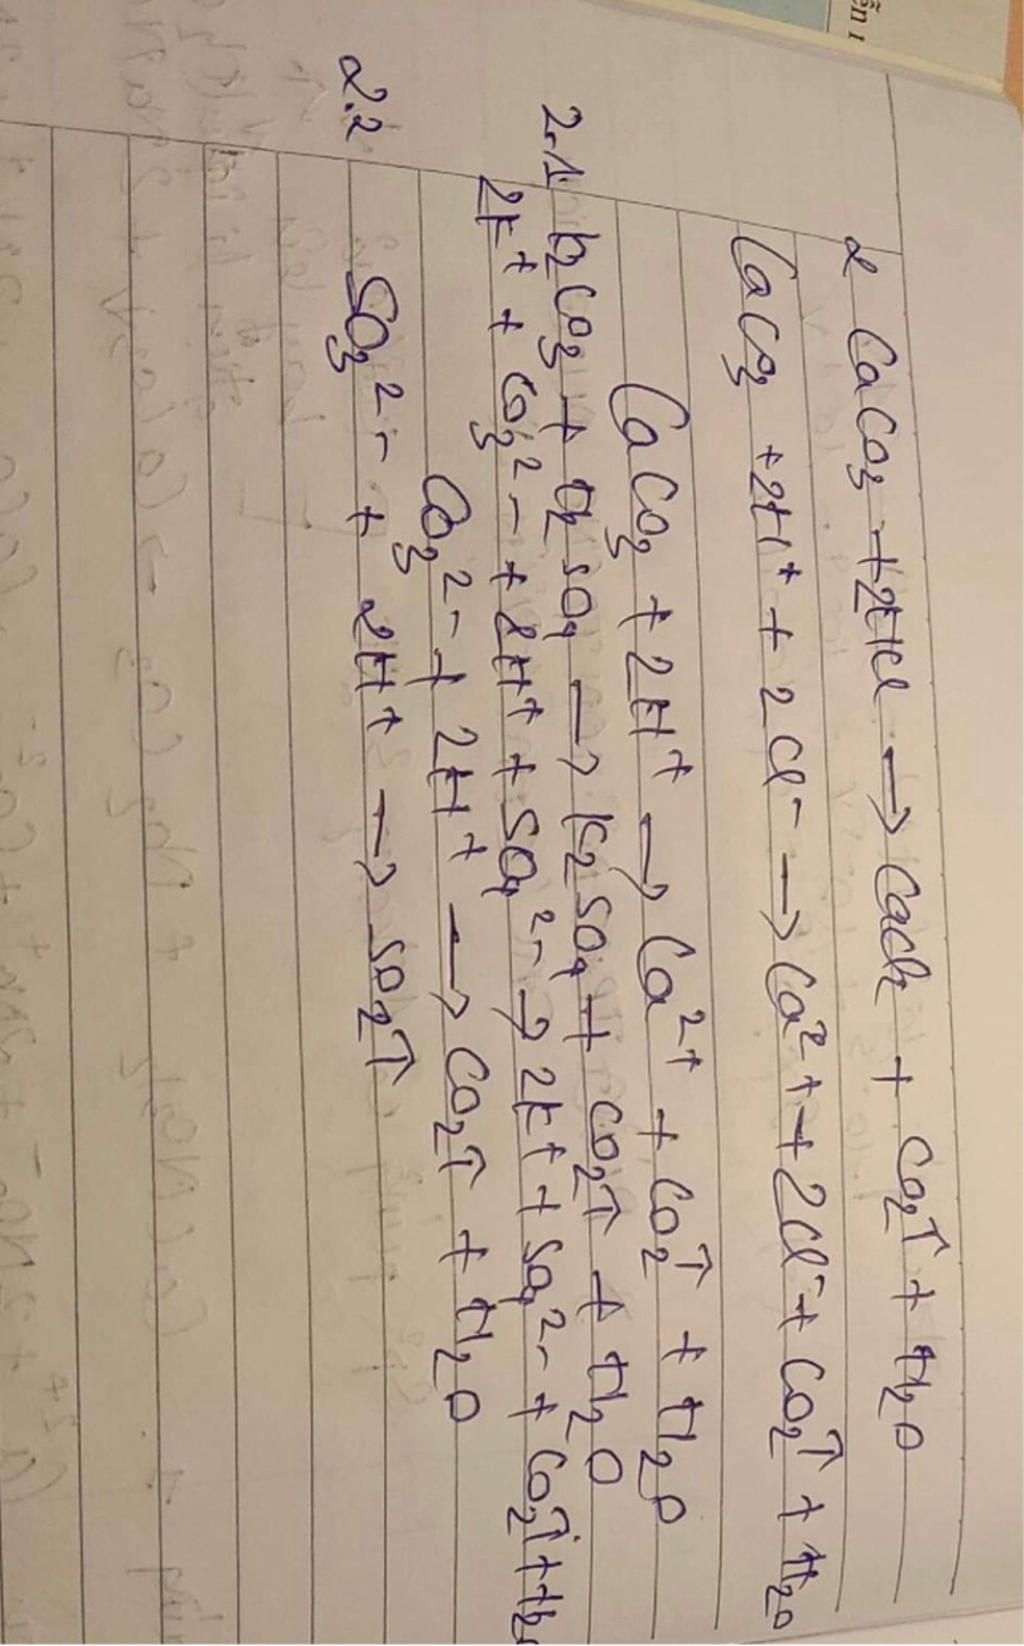 ẫn 1
2 CaCO3 + 2HCl → CaCl2 + CO2↑ + H2O
CaCO3 + 2H+ + 2Cl- → Ca2+ + 2Cl- + CO2↑ + H2O
CaCO3 + 2H+ → Ca2+ + CO2↑ + H2O
2.1. K2CO3 + H2SO4 → K2SO4 + CO2↑ + H2O
2K+ + CO3 2- + 2H+ + SO4 2- → 2K+ + SO4 2- + CO2↑ + H2
CO3 2- + 2H+ → CO2↑ + H2O
2.2 SO3 2- + 2H+ → SO2↑